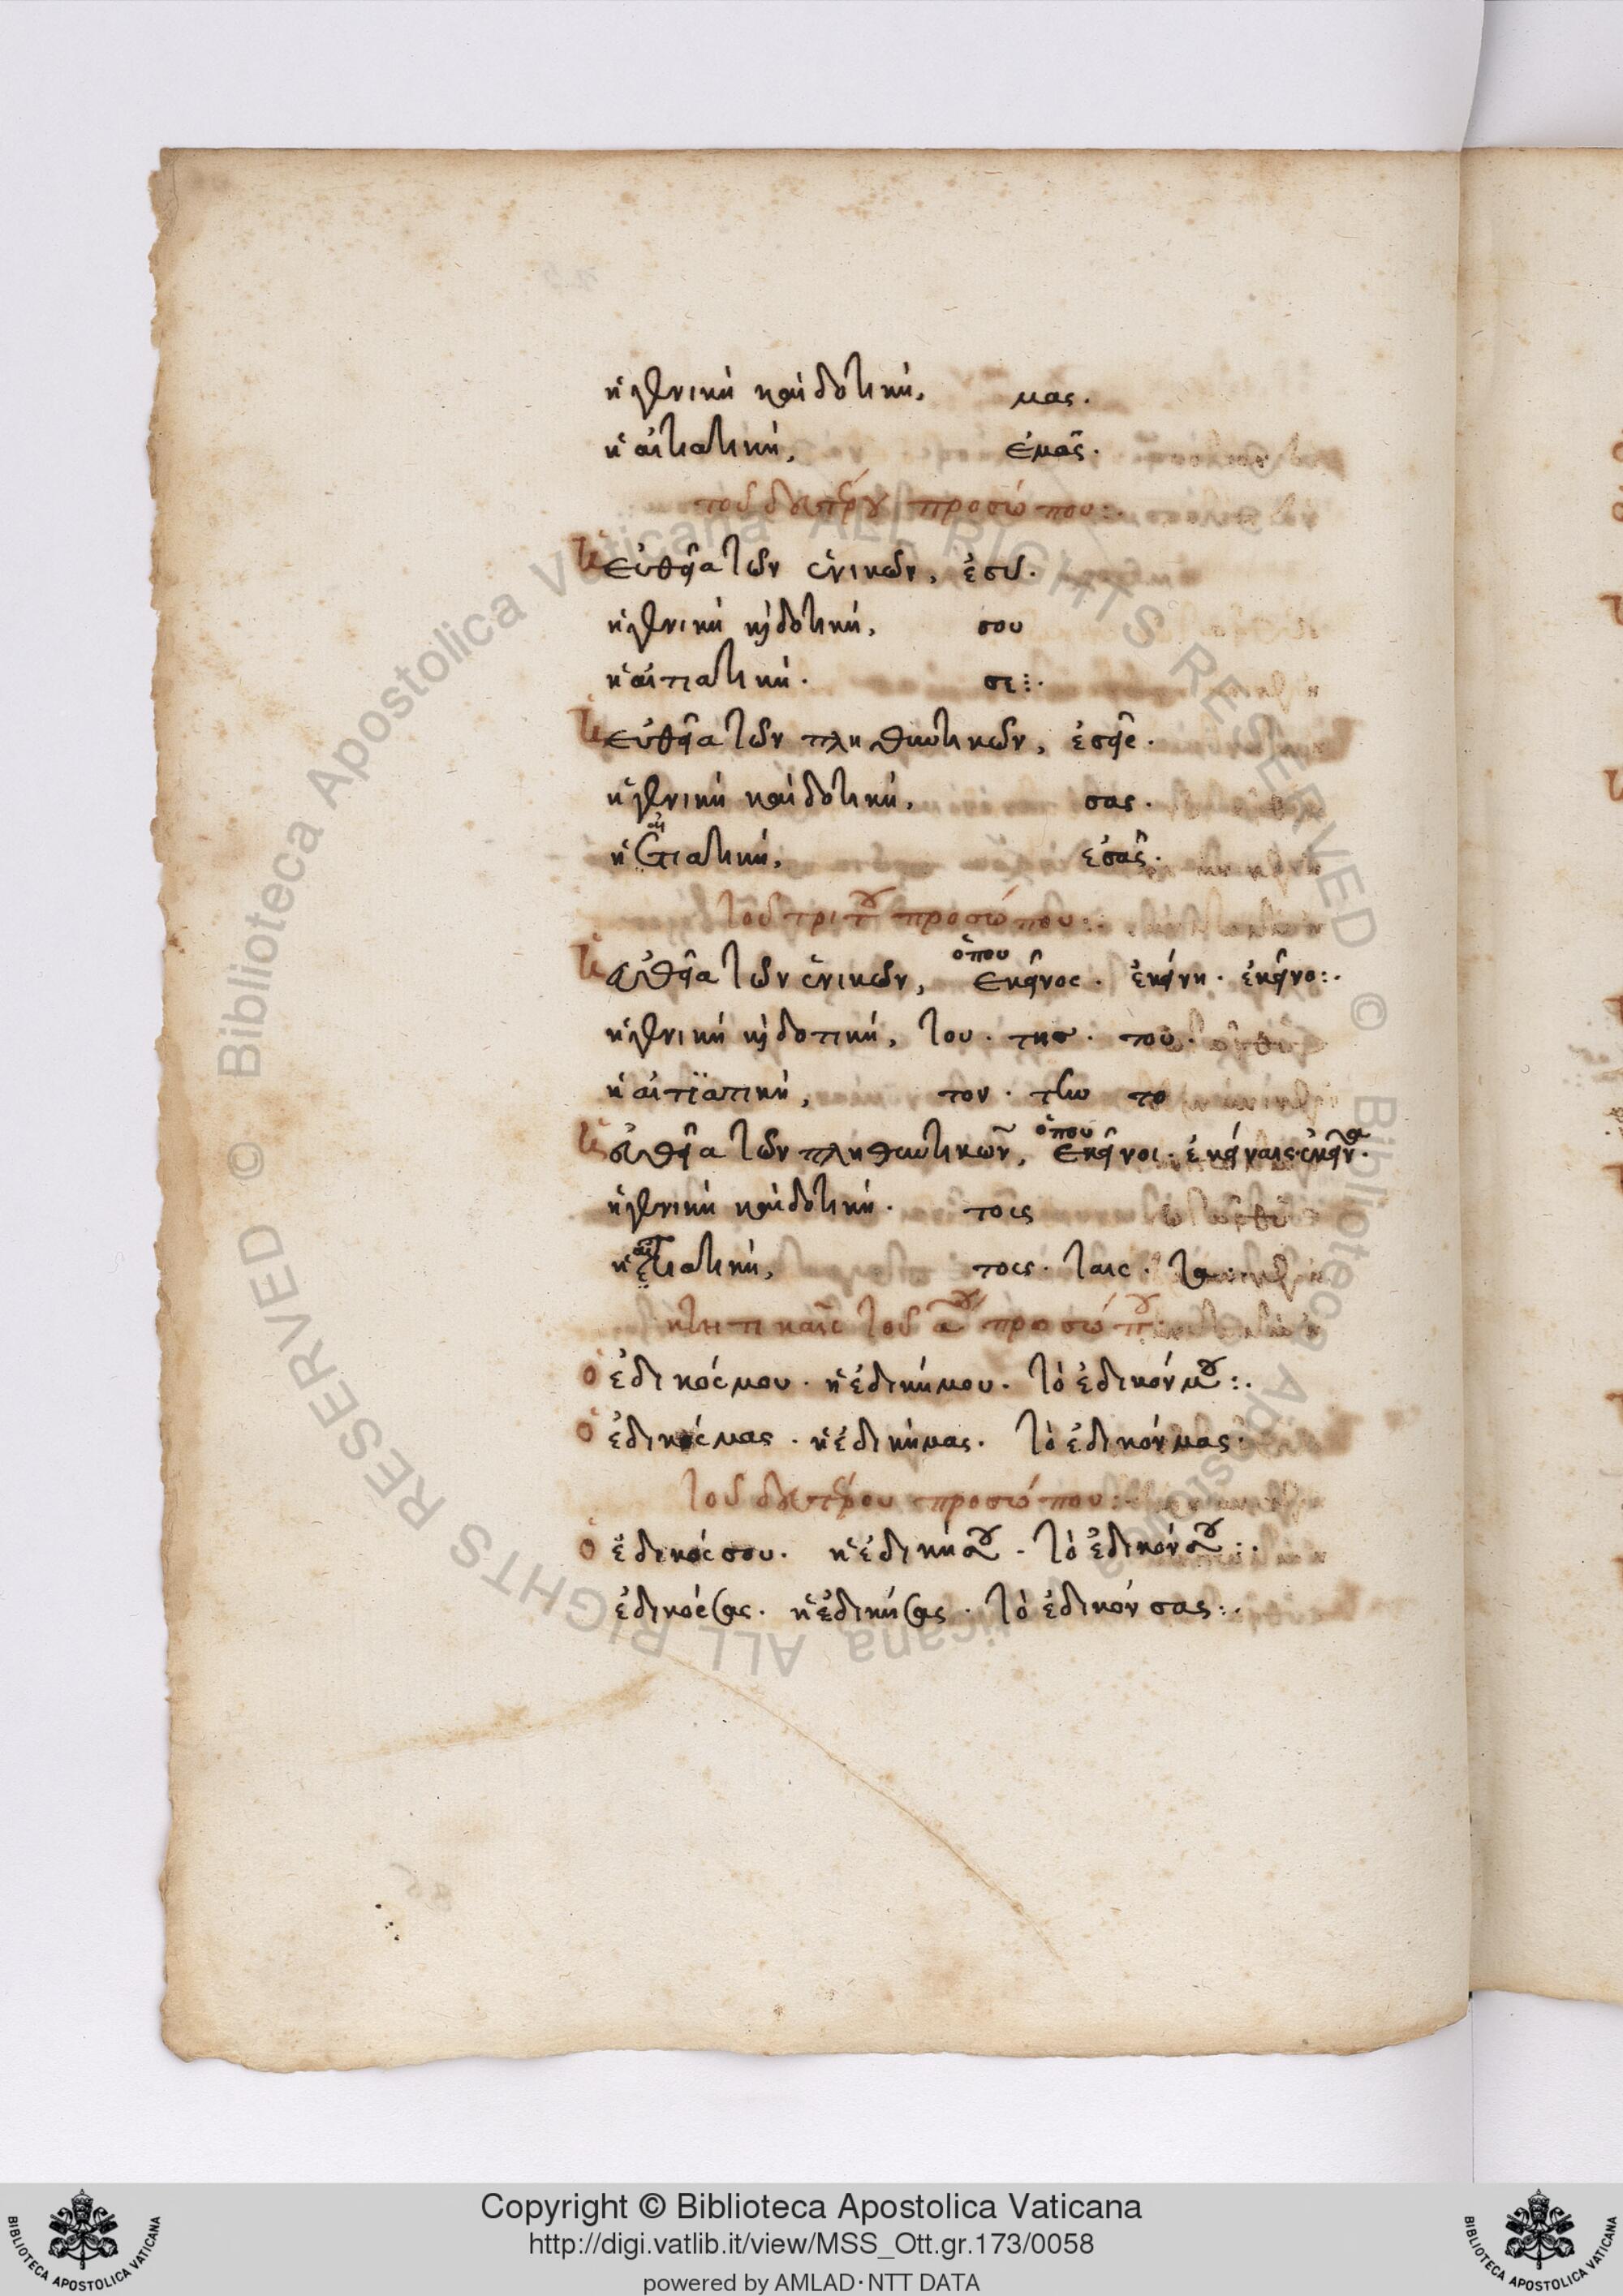 ἡ γενική καὶ δοτική, μας.
ἡ αἰτιατική, ἐμᾶς.
τοῦ δευτέρου προσώπου:.
ἡ εὐθεῖα τῶν ἑνικῶν, ἐσύ.
ἡ γενική καὶ δοτική, σου
ἡ αἰτιατική. σε:.
ἡ εὐθεῖα τῶν πληθυντικῶν, ἐσεῖς.
ἡ γενική καὶ δοτική, σας.
ἡ αἰτιατική, ἐσᾶς.
τοῦ τρίτου προσώπου:.
ὁπου
ἡ εὐθεῖα τῶν ἑνικῶν, εκεῖνος. ἐκείνη. ἐκεῖνο:.
ἡ γενική καὶ δοτική, του. της. του.
ἡ αἰτϊατική, τον. την το
ὁπου
ἡ εὐθεῖα τῶν πληθυντικῶν, εκεῖνοι. ἐκείναις. ἐκεῖνα.
ἡ γενική καὶ δοτική. τοις
ἡ αἰτιατική, τοις. ταις. τα.
κτητικαῖς τοῦ α ου προσώπου
ὁ ἐδικόςμου. ἡ ἐδικήμου. τὸ ἐδικόνμου:.
ὁ ἐδικόςμας. ἡ ἐδικήμας. τὸ ἐδικόνμας.
τοῦ δευτέρου προσώπου:.
ὁ ἐδικόςσου. ἡ ἐδικήσου. τὸ ἐδικόνσου:.
ἐδικόςσας. ἡ ἐδικήσας. τὸ ἐδικόν σας:.
Biblioteca Apostolica Vaticana ALL RIGHTS RESERVED ©
Copyright © Biblioteca Apostolica Vaticana
http://digi.vatlib.it/view/MSS_Ott.gr.173/0058
powered by AMLAD·NTT DATA
BIBLIOTECA APOSTOLICA VATICANA
BIBLIOTECA APOSTOLICA VATICANA